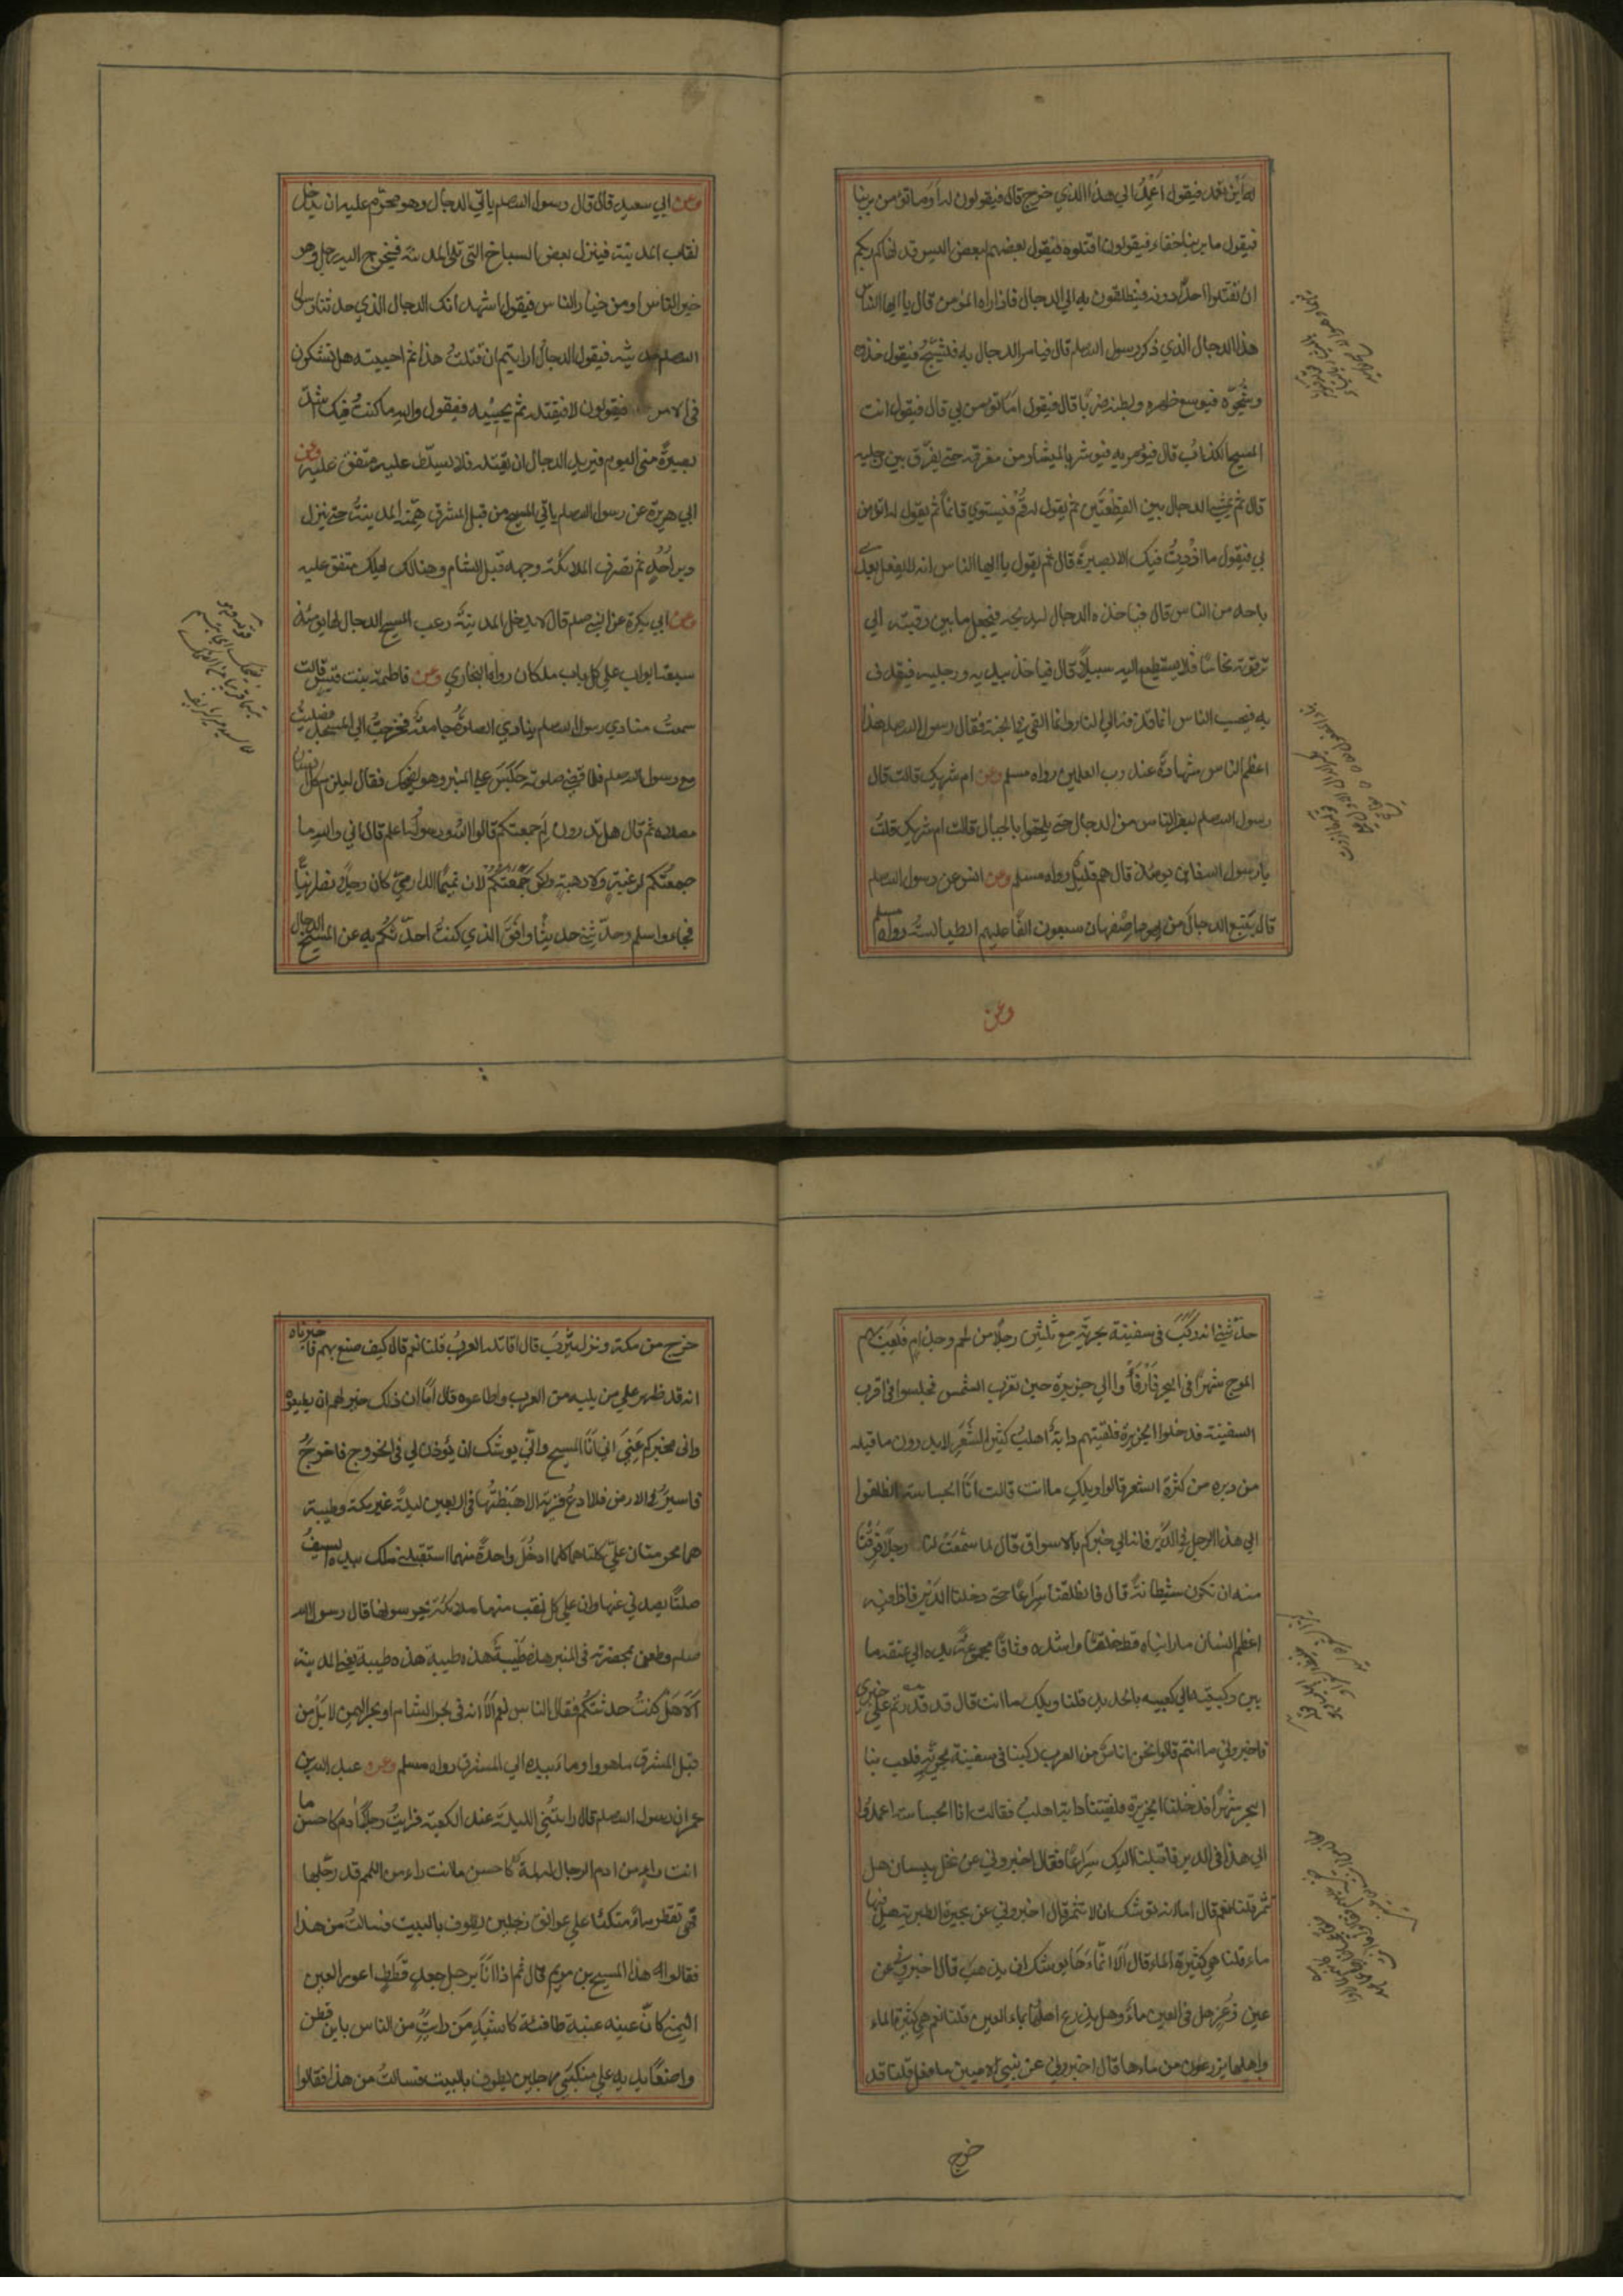 اين تعمد فيقول اَعْمِدُ الي هذا الذي خرج قال فيقولون له اَوَ ما تؤمن بربنا
فيقول ما بربنا خفاء فيقولون اقتلوه فيقول بعضهم لبعض اليس قد نهاكم ربكم
ان تقتلوا احدًا دونه فينطلقون به الي الدجال فاذا راه المؤمن قال يا ايها الناس
هذا الدجال الذي ذكر رسول الله صلم قال فيامر الدجال به فيشبح فيقول خذوه
وشُجُّوه فيوسع ظهره وبطنه ضربًا قال فيقول اما تؤمن بي قال فيقول انت
المسيح الكذاب قال فيؤمر به فيوشر بالميشار من مفرقه حتي يفرّق بين رجليه
قال ثم يمشي الدجال بين القِطْعتَين ثم يقول له قُمْ فيستوي قائماً ثم يقول له اتؤمن
بي فيقول ما ازْددتُ فيك الا بصيرة قال ثم يقول يا ايها الناس انه لا يفعل بعدي
باحد من الناس قال فياخذه الدجال ليذبحه فيجعل ما بين رقبته الي
ترقوته نحاسًا فلا يستطيع اليه سبيلاً قال فياخذ بيديه ورجليه فيقذف
به فيحسب الناس انما قذفه الي النار وانما القي في الجنة فقال رسول الله صلم هذا
اعظم الناس شهادةً عند رب العلمين رواه مسلم وعن ام شريك قالت قال
رسول الله صلم ليفرن الناس من الدجال حتي يلحقوا بالجبال قالت ام شريك قلتُ
يا رسول الله فاين يومئذ قال هم قليلٌ رواه مسلم وعن انس عن رسول الله صلم
قال يتبع الدجالَ من يهود اصْفهان سبعون الفًا عليهم الطيالسةُ رواه مسلم
وعن
وعن ابي سعيد قال قال رسول الله صلم ياتي الدجال وهو محرّم عليه ان يدخل
نقاب المدينة فينزل بعض السباخ التي تلي المدينة فيخرج اليه رجل وهو
خير الناس او من خيار الناس فيقول اشهد انك الدجال الذي حدثنا رسول
الله صلم حديثه فيقول الدجال ارايتم ان قتلتُ هذا ثم احييته هل تشكون
في الامر فيقولون لا فيقتله ثم يحييه فيقول والله ما كنتُ فيك اشدّ
بصيرةً مني اليوم فيريد الدجال ان يقتله فلا يسلّط عليه متفق عليه وعن
ابي هريرة عن رسول الله صلم ياتي المسيح من قبل المشرق هِمّته المدينةُ حتي ينزل
دبر اُحُدٍ ثم تصرف الملائكة وجهه قبل الشام وهنالك يهلك متفق عليه
وعن ابي بكرة عن النبي صلم قال لا يدخل المدينةَ رعب المسيح الدجال لها يومئذ
سبعة ابواب علي كل باب ملكان رواه البخاري وعن فاطمة بنت قيس قالت
سمعتُ منادي رسول الله صلم ينادي الصلوةُ جامعةٌ فخرجتُ الي المسجد فصليتُ
مع رسول الله صلم فلما قضي صلوته جَلَسَ علي المنبر وهو يضحك فقال ليلزم كل انسان
مصلاه ثم قال هل تدرون لِمَ جمعتكم قالوا الله ورسوله اعلم قال اني والله ما
جمعتُكم لرغبةٍ ولا رهبةٍ ولكن جمعتُكُمْ لان تميمًا الداريّ كان رجلاً نصرانيًّا
فجاء واسلم وحدّثني حديثًا وافَقَ الذي كنتُ احدّثكم به عن المسيح الدجال
حدّثني انه ركبَ في سفينة بحريّة مع ثلثين رجلاً من لخم وجذام فلَعِبَ بهم
الموج شهرًا في البحر فاَرْفَأُوا الي جزيرة حين تغرب الشمس فجلسوا في اقرب
السفينة فدخلوا الجزيرة فلقيتهم دابةٌ اهلب كثير الشَعَرِ لا يدرون ما قبله
من دبره من كثرة الشعر قالوا ويلكِ ما انت قالت انا الجساسة انطلقوا
الي هذا الرجل في الدَّيْر فانه الي خبركم بالاشواق قال لما سَمَّتْ لنا رجلاً فَرِقْنا
منها ان تكون شيطانة قال فانطلقنا سِراعًا حتي دخلنا الدَيْر فاذا فيه
اعظم انسان ما رايناه قط خلقًا واشده وثاقًا مجموعةٌ يده الي عنقه ما
بين ركبتيه الي كعبيه بالحديد قلنا ويلك ما انت قال قد قدرتم علي خبري
فاخبروني ما انتم قالوا نحن اناسٌ من العرب ركبنا في سفينة بحريّةٍ فلعب بنا
البحر شهرًا فدخلنا الجزيرة فلقيتنا دابة اهلبُ فقالت انا الجساسة اعمدوا
الي هذا في الدير فاقبلنا اليك سِراعًا فقال اخبروني عن نخل بيسان هل
تثمر قلنا نعم قال اما انها توشك ان لا تثمر قال اخبروني عن بحيرة الطبرية هل فيها
ماء قلنا هي كثيرة الماء قال اَلاَ ان ماءَها يوشك ان يذهبَ قال اخبروني عن
عين زُغَرَ هل في العين ماءٌ وهل يزرع اهلُها بماء العين قلنا نعم هي كثيرة الماء
واهلها يزرعون من ماءها قال اخبروني عن نبي الاميين ما فعل قلنا قد
خرج
خرج من مكة ونزل يثرب قال اقاتله العربُ قلنا نعم قال كيف صنع بهم فاخبرناه
انه قد ظهر علي من يليه من العرب واطاعوه قال اما ان ذلك خير لهم ان يطيعوه
واني مخبركم عَنّي اني انا المسيح وانّي يوشك ان يُؤذن لي في الخروج فاخرجُ
فاسيرُ في الارض فلا ادعُ قريةً الا هبَطتُها في اربعين ليلةً غير مكة وطيبة
هما محرمتان عليّ كلتاهما كلما ان ادخُلَ واحدةً منهما استقبلني ملك بيده السيفُ
صلتًا يصدني عنها وان علي كل نقب منها ملائكة يحرسونها قال رسول الله
صلم وطعن بمخصرته في المنبر هذه طَيْبةُ هذه طيبة هذه طيبة يعني المدينة
اَلاَ هَلْ كنتُ حدثتكم فقال الناس نعم اَلاَ انه في بحر الشام او بحر اليمن لا بَلْ من
قبل المشرق ما هو واومأ بيده الي المشرق رواه مسلم وعن عبد الله بن
عمر ان رسول الله صلم قال رايتُني الليلةَ عند الكعبة فرايتُ رجلاً ادم كاحسن ما
انت راءٍ من ادم الرجال له لمة كاحسن ما انت راء من اللمم قد رجّلها
فهي تقطر ماءً متكئًا علي عواتق رجلين يطوف بالبيت فسالتُ من هذا
فقالوا هذا المسيح بن مريم قال ثم اذا انا برجل جعدٍ قَطَطٍ اعور العين
اليمني كانّ عينه عنبة طافئة كاشبه مَن رايتُ من الناس بابن قطن
واضعًا يديه علي منكبَي رجلين يطوف بالبيت فسالتُ من هذا فقالوا